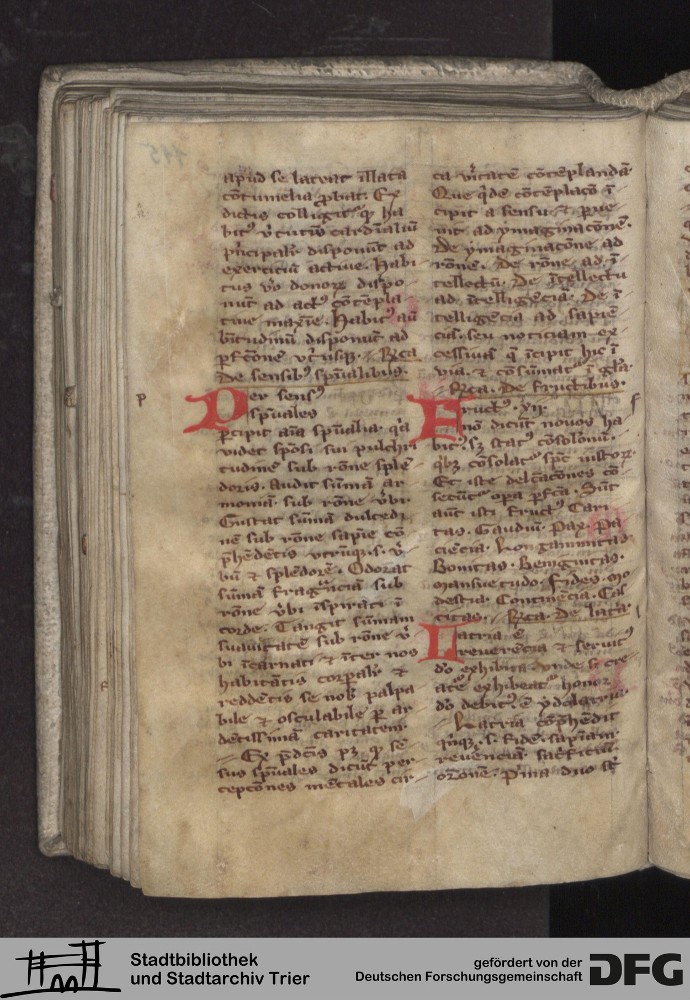 apud se lateat illata
cōtumelia ꝓbat. Ex
dictis colligit͛ ꝙ ha
bitꝰ v͛tutū cardinaliū
p͛ncipalit͛ disponūt ad
exerciciū actiue. Habi
tus v͛o donoꝝ dispo
nūt ad actꝰ cōtēpla
tiue
Habitꝰ aū
btitudinū disponūt ad
ꝑfcōne vt͛usqꝫ. Rͬca
De sensibꝰ spūalibus.
Per sensꝰ
spūales
ꝑcipit aīa spūalia. q͛a
videt spōsi sui pulchri
tudinē sub rōne splē
doris. Audit sūmā ar
moniā sub rōne v͛bi
Gustat sūmā dulcedī
nē sub rōne sapīe cō
p͛hēdētis vtrūqꝫ .s. v͛
bū ⁊ splēdorē. Odorat
sūmā fragrāciā sub
rōne v͛bi īspirati ī
corde. Tangit sūmam
suauitatē sub rōne v͛
bi īcarnati ⁊ īter nos
habitātis corꝑalit͛ ⁊
reddētis se nob̄ palpa
bile ⁊ osculabile ꝑ ar
dētissimā caritatem.
Ex p̄dc̄is pꝫ ꝙ sē
sus spūales dicūt͛ per
cepcōnes mētales cir
ca v͛itatē cōtēplandā
Que q͛dē cōtēplacō ī
cipit a sensu. ⁊ ꝑue
nit ad ymaginacōnē.
De ymaginacōne ad
rōnē. De rōne ad ī
tellectū. De ītellectu
ad ītelligēcia. De ī
telligēcia ad sapiē
ciā seu noticiam ex
cessiuā q̄ īcipit hic ī
via. ⁊ cōsūmat͛ ī gl͛ia
Rͬca. De fructibus.
Fructꝰ. xij.
nō dicūt nouos ha
bitꝰ sꝫ statꝰ
q͛bꝫ
Et iste delc̄acōnes cō
secūt͛
ꝑfc̄a. Sūt
aūt isti fructꝰ Cari
tas. Gaudiū. Pax. Pa
ciēcia. Longanimitas
Bonitas. Benignitas.
Mansuetudo. Fides. Mo
destia. Continēcia. Cas
titas. Rͬca. De latria
Latria ē
reuerēcia ⁊ seruitꝰ
dō exhibita. vnde si cre
at͛e exhibeat͛ honor
dō debitꝰ ē ydolatria.
Latria cōp̄hēdit
.s. fidē. sapīam.
reuēnciā. sac͛ficiū.
or̄onē. P͛ma duo
115
Stadtbibliothek
und Stadtarchiv Trier
gefördert von der
Deutschen Forschungsgemeinschaft
DFG